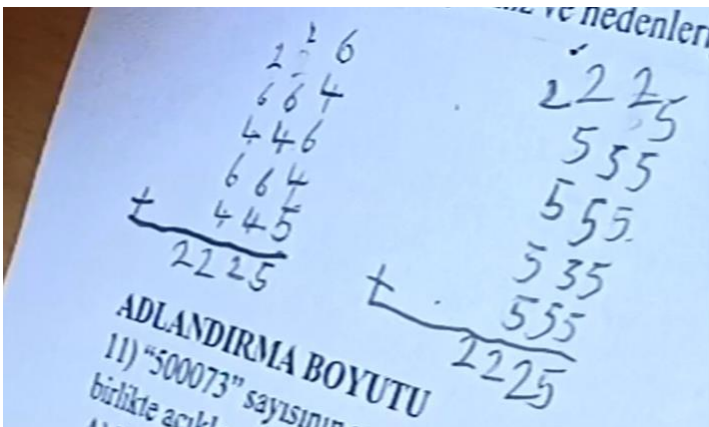 ve nedenleri
2 2 6
664
446
664
+ 445
2225
2 2 2 5
555
555
555
+ 555
2225
ADLANDIRMA BOYUTU
11) “500073” sayısının
birlikte